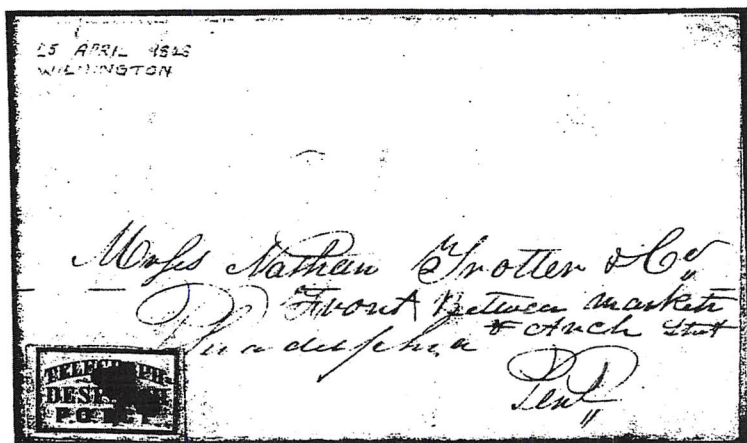 25 APRIL
WILMINGTON
Messs Nathan Trotter & Co
Front Between market
& Arch Street
Philadelphia
TELEGRAPH
P.O.